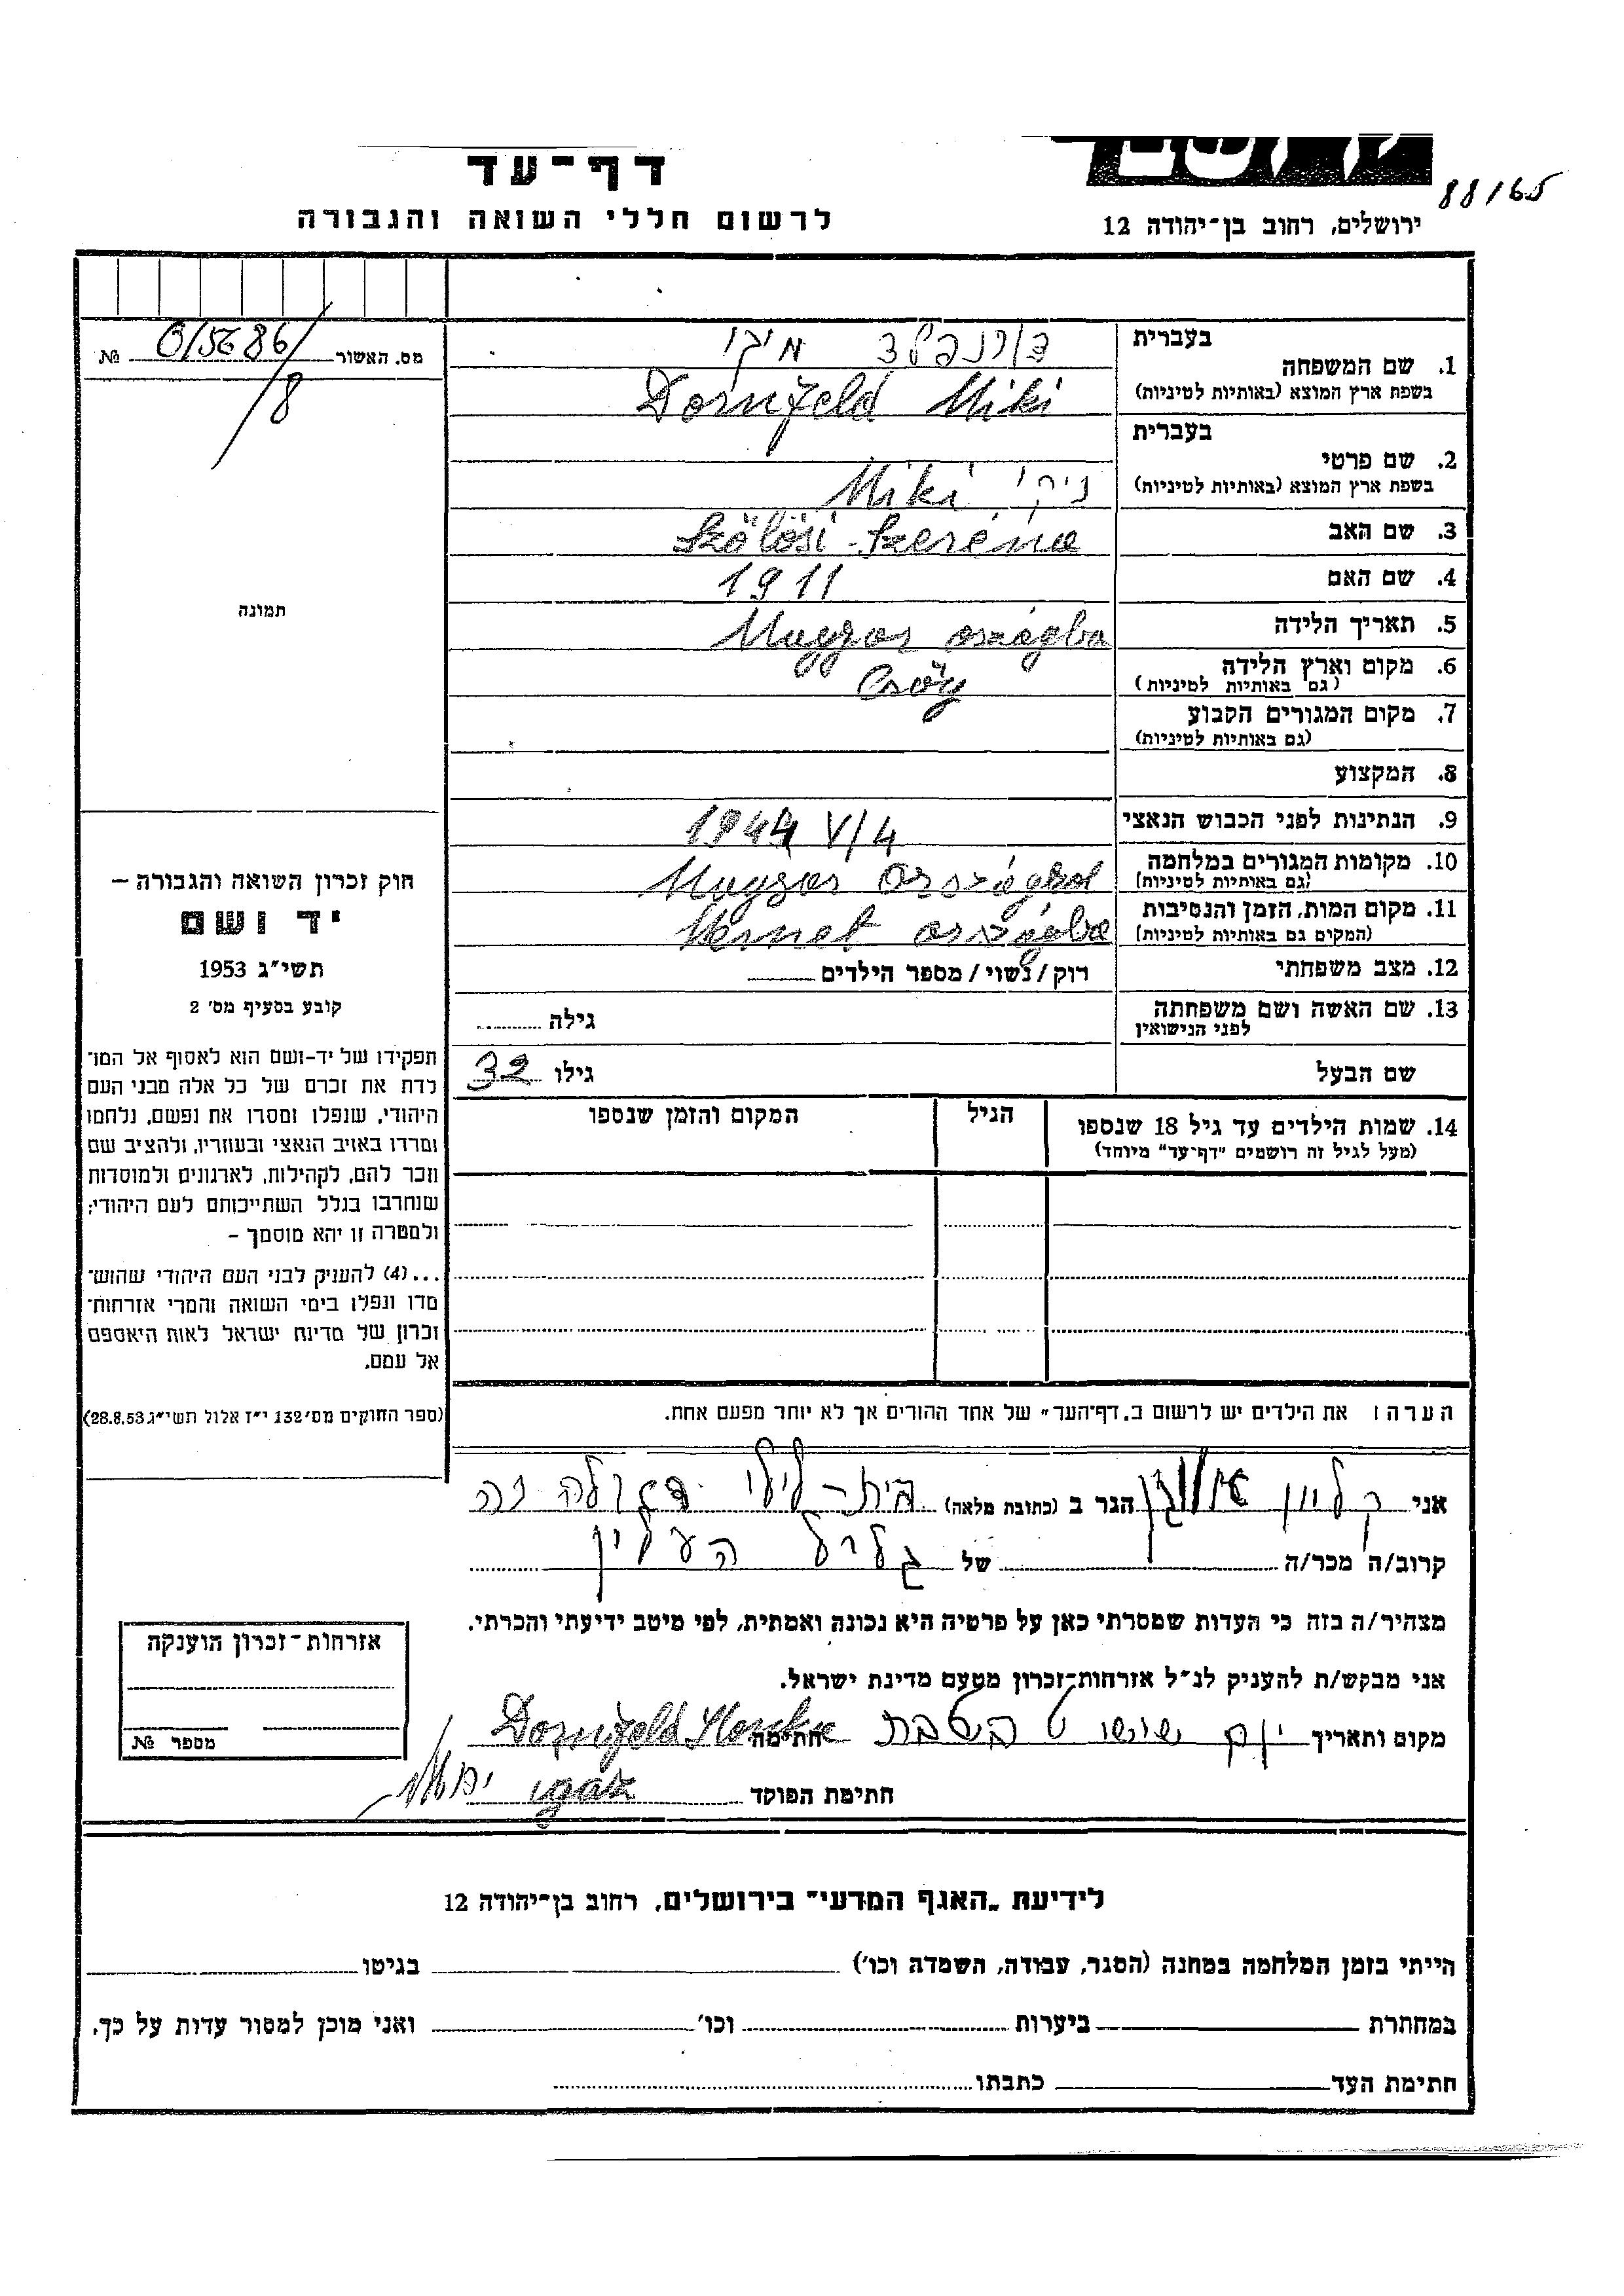 88/65
דף-עד
לרשום חללי השואה והגבורה
ירושלים, רחוב בן-יהודה 12
מס. האשור № 
8
תמונה
חוק זכרון השואה והגבורה –
יד ושם
תשי"ג 1953
קובע בסעיף מס' 2
תפקידו של יד-ושם הוא לאסוף אל המו־
לדת את זכרם של כל אלה מבני העם
היהודי, שנפלו ומסרו את נפשם, נלחמו
ומרדו באויב הנאצי ובעוזריו, ולהציב שם
וזכר להם, לקהילות, לארגונים ולמוסדות
שנחרבו בגלל השתייכותם לעם היהודי;
ולמטרה זו יהא מוסמך –
...(4) להעניק לבני העם היהודי שהוש־
מדו ונפלו בימי השואה והמרי אזרחות־
זכרון של מדינת ישראל לאות היאספם
אל עמם.
(ספר החוקים מס' 132 י"ז אלול תשי"ג 28.8.53)
בעברית דורנפלד מיקי
1. שם המשפחה
בשפת ארץ המוצא (באותיות לטיניות) Dornfeld Miki
בעברית
2. שם פרטי
בשפת ארץ המוצא (באותיות לטיניות) מיקי Miki
3. שם האב Szölösi Szeréna
4. שם האם 1911
5. תאריך הלידה Magyar országba
6. מקום וארץ הלידה
(גם באותיות לטיניות)
7. מקום המגורים הקבוע
(גם באותיות לטיניות)
8. המקצוע
9. הנתינות לפני הכבוש הנאצי 1944 V/4
10. מקומות המגורים במלחמה
(גם באותיות לטיניות) Magyar országbol
11. מקום המות, הזמן והנסיבות
(המקום גם באותיות לטיניות) országba
12. מצב משפחתי רוק / נשוי / מספר הילדים
13. שם האשה ושם משפחתה
לפני הנישואין גילה
שם הבעל גילו 32
14. שמות הילדים עד גיל 18 שנספו הגיל המקום והזמן שנספו
(מעל לגיל זה רושמים "דף-עד" מיוחד)
הערה: את הילדים יש לרשום ב"דף-העד" של אחד ההורים אך לא יותר מפעם אחת.
אני הגר ב (כתובת מלאה)
קרוב/ה מכר/ה של גליל העליון
מצהיר/ה בזה כי העדות שמסרתי כאן על פרטיה היא נכונה ואמתית, לפי מיטב ידיעתי והכרתי.
אני מבקש/ת להעניק לנ"ל אזרחות-זכרון מטעם מדינת ישראל.
מקום ותאריך חתימה Dornfeld
חתימת הפוקד
אזרחות-זכרון הוענקה
מספר №
לידיעת "האגף המדעי" בירושלים, רחוב בן-יהודה 12
הייתי בזמן המלחמה במחנה (הסגר, עבודה, השמדה וכו') בגיטו
במחתרת ביערות וכו' ואני מוכן למסור עדות על כך.
חתימת העד כתבתו